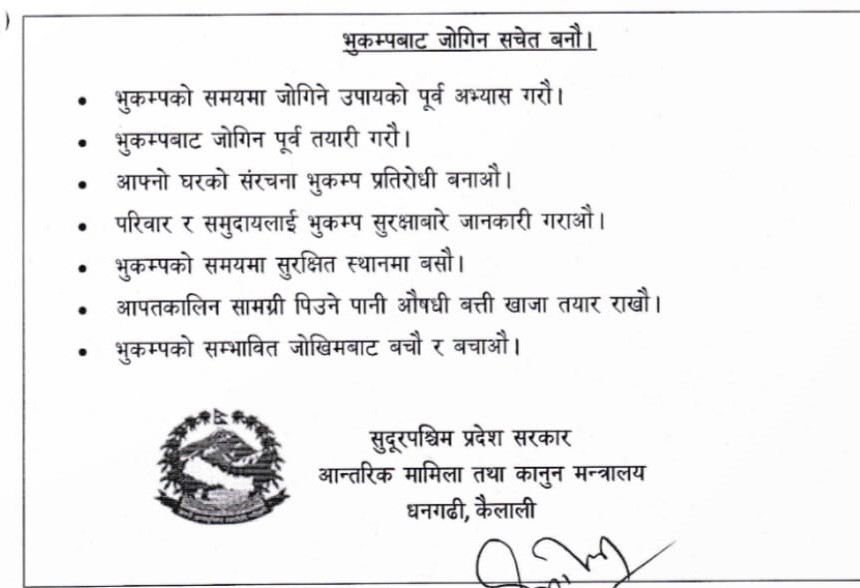 )
भुकम्पबाट जोगिन सचेत बनौ।
• भुकम्पको समयमा जोगिने उपायको पूर्व अभ्यास गरौ।
• भुकम्पबाट जोगिन पूर्व तयारी गरौ।
• आफ्नो घरको संरचना भुकम्प प्रतिरोधी बनाऔ।
• परिवार र समुदायलाई भुकम्प सुरक्षाबारे जानकारी गराऔ।
• भुकम्पको समयमा सुरक्षित स्थानमा बसौ।
• आपतकालिन सामग्री पिउने पानी औषधी बत्ती खाजा तयार राखौ।
• भुकम्पको सम्भावित जोखिमबाट बचौ र बचाऔ।
सुदूरपश्चिम प्रदेश सरकार
आन्तरिक मामिला तथा कानुन मन्त्रालय
धनगढी, कैलाली